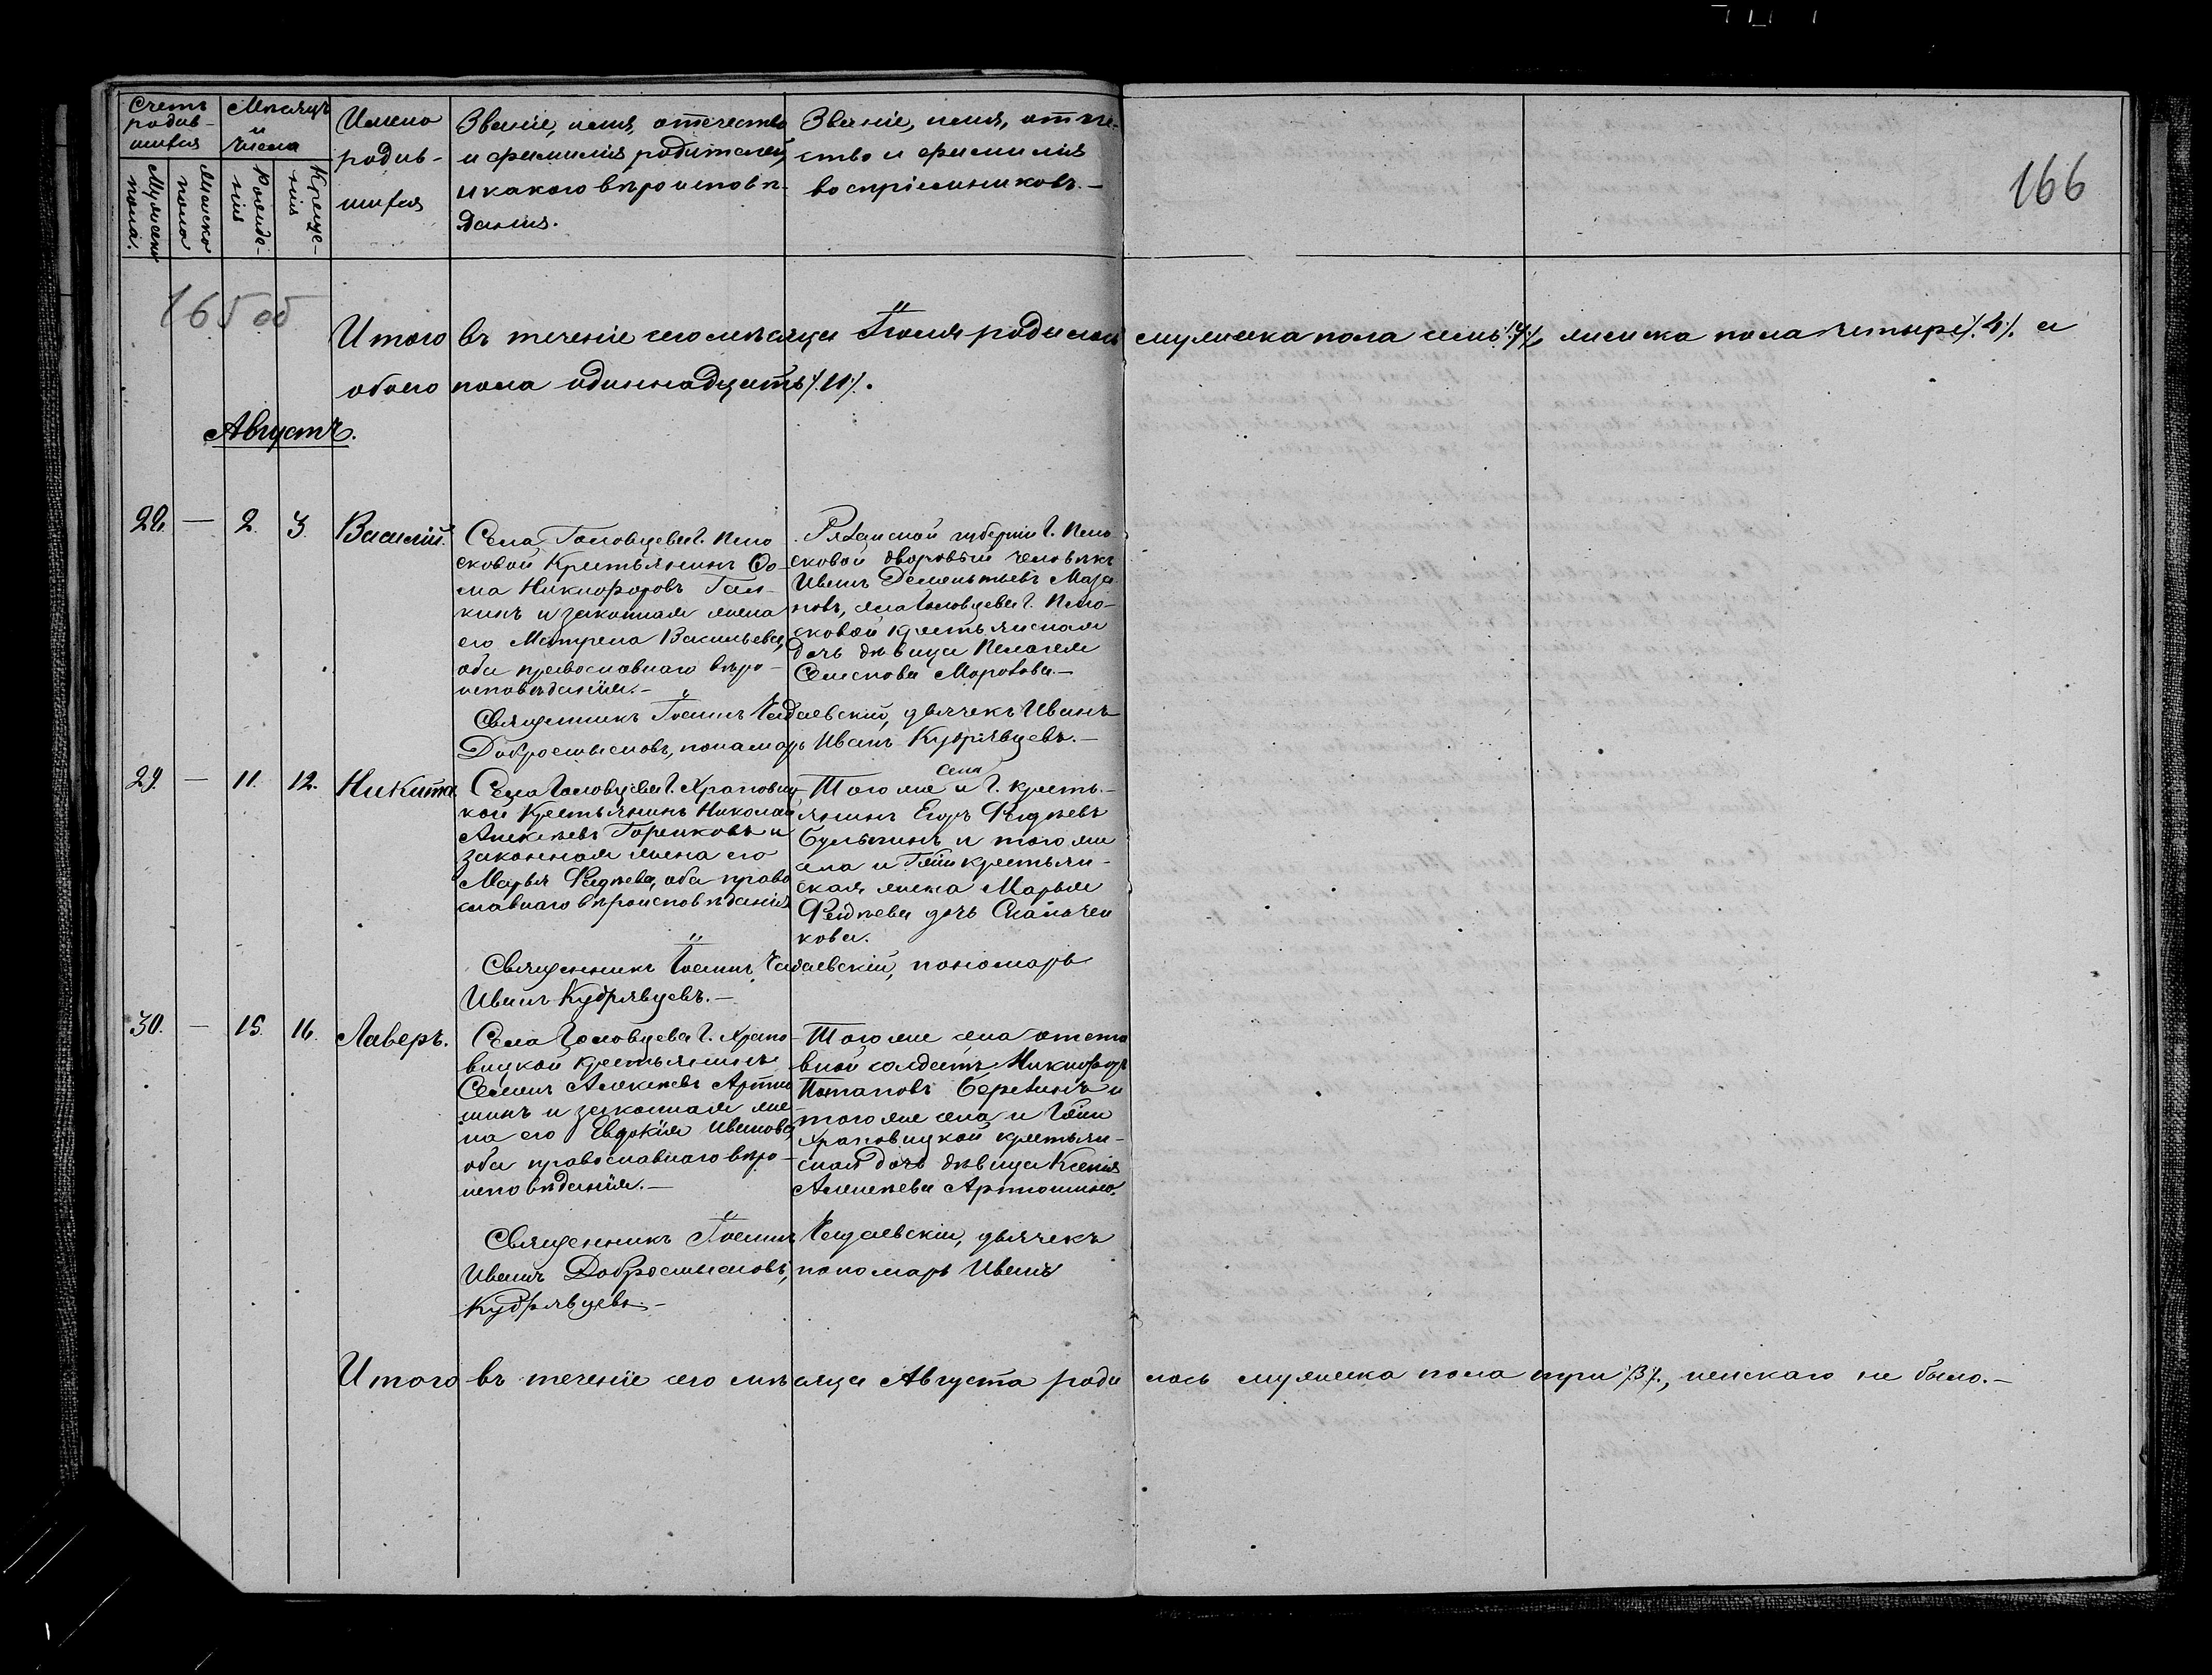 166
Счетъ родив-шихся
Мѣсяцъ и числа
Имена родив-шихся
Званіе, имя, отечество и фамилія родителей, и какого вѣроисповѣ-данія.
Званіе, имя, отече-ство и фамилія воспріемниковъ.-
Мужеска пола.
Женска пола
Рожде-нія
Креще-нія
165 об
Итого въ теченіе сего мѣсяца Іюля родилось мужеска пола семь /7/, женска пола четыре /4/. а
обоего пола одиннадцать /11/.
Августъ.
28. — 2. 3. Василій.
Села Головцева Г. Пено
сковой Крестьянинъ Ѳо-
ма Никифоровъ Гал-
кинъ и законная жена
его Матрена Васильева,
оба православнаго вѣро-
исповѣданія.-
Рязанской губерніи Г. Пено
сковой дворовый человѣкъ
Иванъ Дементьевъ Маза
новъ, села Головцева Г. Пено-
сковой крестьянская
дочь дѣвица Пелагея
Семенова Морозова.-
Священникъ Іоаннъ Чадаевскій, дьячекъ Иванъ
Добросмысловъ, понамарь Иванъ Кудрявцевъ.-
29. — 11. 12. Никита.
Села Головцева Г. Храповиц-
кой Крестьянинъ Николай
Алексѣевъ Гореиковъ и
законная жена его
Марья Фадѣева, оба право
славнаго вѣроисповѣданія
села
Того же и Г. кресть-
янинъ Егоръ Фадѣевъ
Булыгинъ и того же
села и Г-жи крестьян-
ская жена Марья
Фадѣева дочь
кова.
Священникъ Іоаннъ Чадаевскій, пономарь
Иванъ Кудрявцевъ.-
30. — 15. 16. Лаверъ.
Села Головцева Г. Храпо
вицкой крестьянинъ
Семенъ Алексѣевъ Артю
шинъ и законная же-
на его Евдокія Иванова,
оба православнаго вѣро-
исповѣданія.-
Того же села отста
вной солдатъ Никифоръ
Потаповъ Березинъ и
того же села и Г-жи
Храповицкой крестьян-
ская дочь дѣвица Ксенія
Алексѣева Артюшина.
Священникъ Іоаннъ Чадаевскій, дьячекъ
Иванъ Добросмысловъ, пономарь Иванъ
Кудрявцевъ.-
Итого въ теченіе сего мѣсяца Августа родилось мужеска пола три /3/, женскаго не было.-